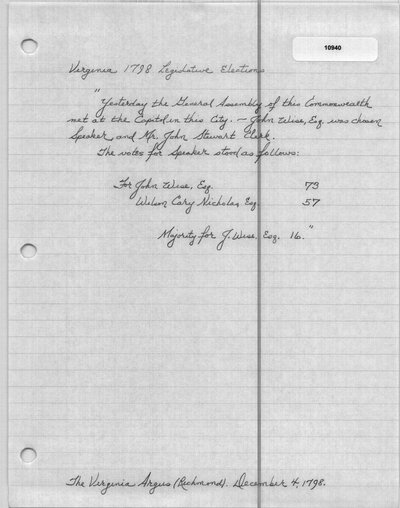 10940
Virginia 1798 Legislative Elections
"Yesterday the General Assembly of this Commonwealth
met at the Capitol in this City. — John Wise, Esq was chosen
Speaker, and Mr. John Stewart Clerk.
The votes for Speaker stood as follows:
For John Wise, Esq. 73
Wilson Cary Nicholas, Esq. 57
Majority for J. Wise, Esq. 16."
The Virginia Argus (Richmond). December 4, 1798.